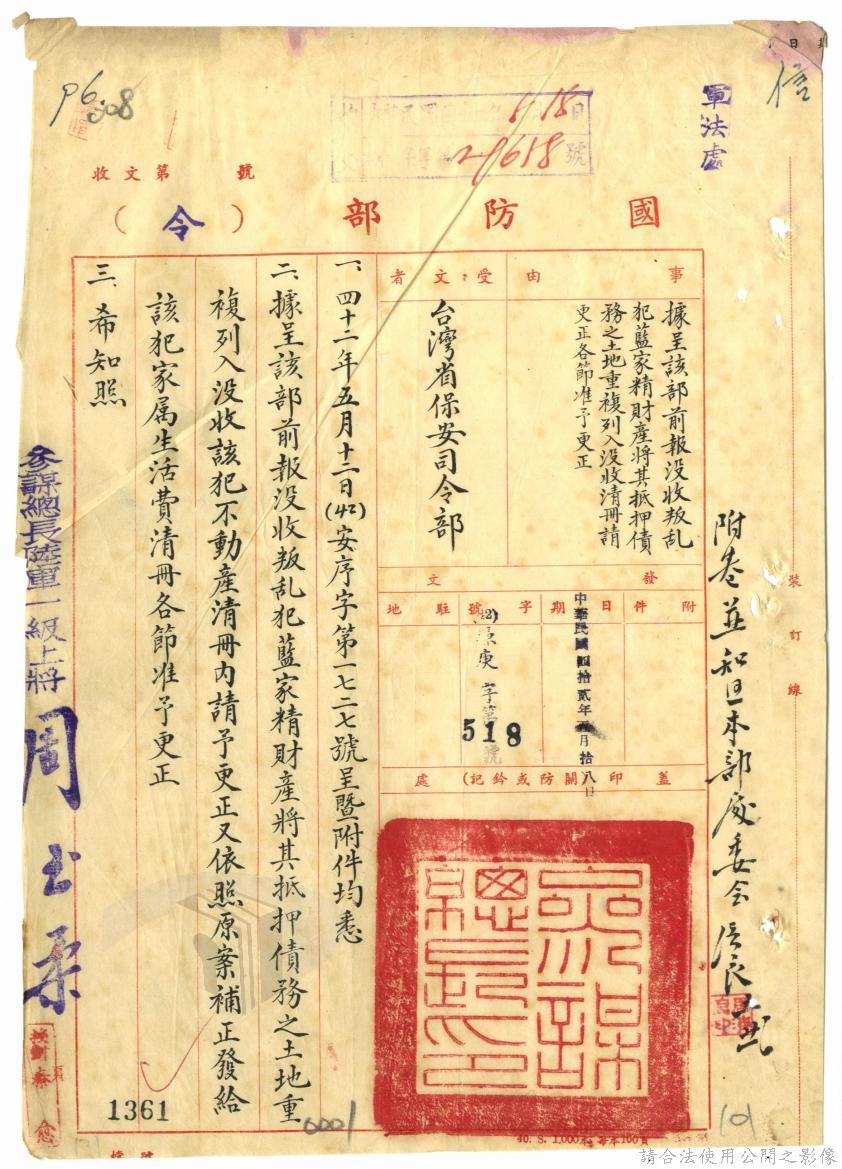 軍法處
信
P6
008
5.18日
29618號
收文第 號
國防部(令)
事由
據呈該部前報没收叛乱
犯藍家精財產將其抵押債
務之土地重複列入没收清冊請
更正各節准予更正
受文者
台灣省保安司令部
發文
附件
日期
中華民國四拾貳年五月拾八日
字號
庚字第518號
駐地
蓋印(關防或鈐記)處
參謀總長印
一、四十二年五月十二日(42)安序字第一七二七號呈暨附件均悉
二、據呈該部前報没收叛乱犯藍家精財產將其抵押債務之土地重
複列入没收該犯不動產清冊内請予更正又依照原案補正發給
該犯家属生活費清冊各節准予更正
三、希知照
參謀總長陸軍一級上將
周至柔
校對
1361
0001
附卷并知旦本部
委会
裝訂線
101
40. 8. 1,000本 每本100頁
請合法使用公開之影像